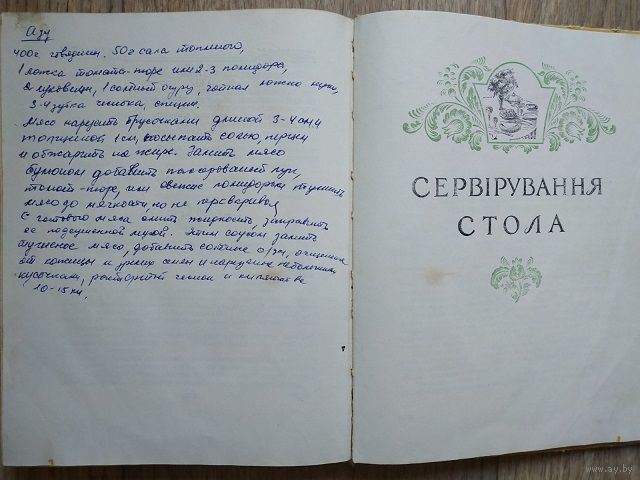 Азу
400г говядины, 50г сала топлёного,
1 ложка томата-пюре или 2-3 помидора,
2 луковицы, 1 солёный огурец, чайная ложка муки,
3-4 зубка чеснока, специи.
Мясо нарезать брусочками длиной 3-4 см и
толщиной 1 см, посыпать солью, перцем
и обжарить на жире. Залить мясо
бульоном добавить пассерованный лук,
томат-пюре, или свежие помидоры и тушить
мясо до мягкости, но не переваривая,
С готового мяса слить жидкость, заправить
ее подсушенной мукой. Этим соусом залить
тушеное мясо, добавить солёные огурцы, очищенные
от кожицы и зрелых семян и нарезанные небольшими
кусочками, растёртый чеснок и кипятить
10-15 мин.
СЕРВІРУВАННЯ
СТОЛА
www.ay.by